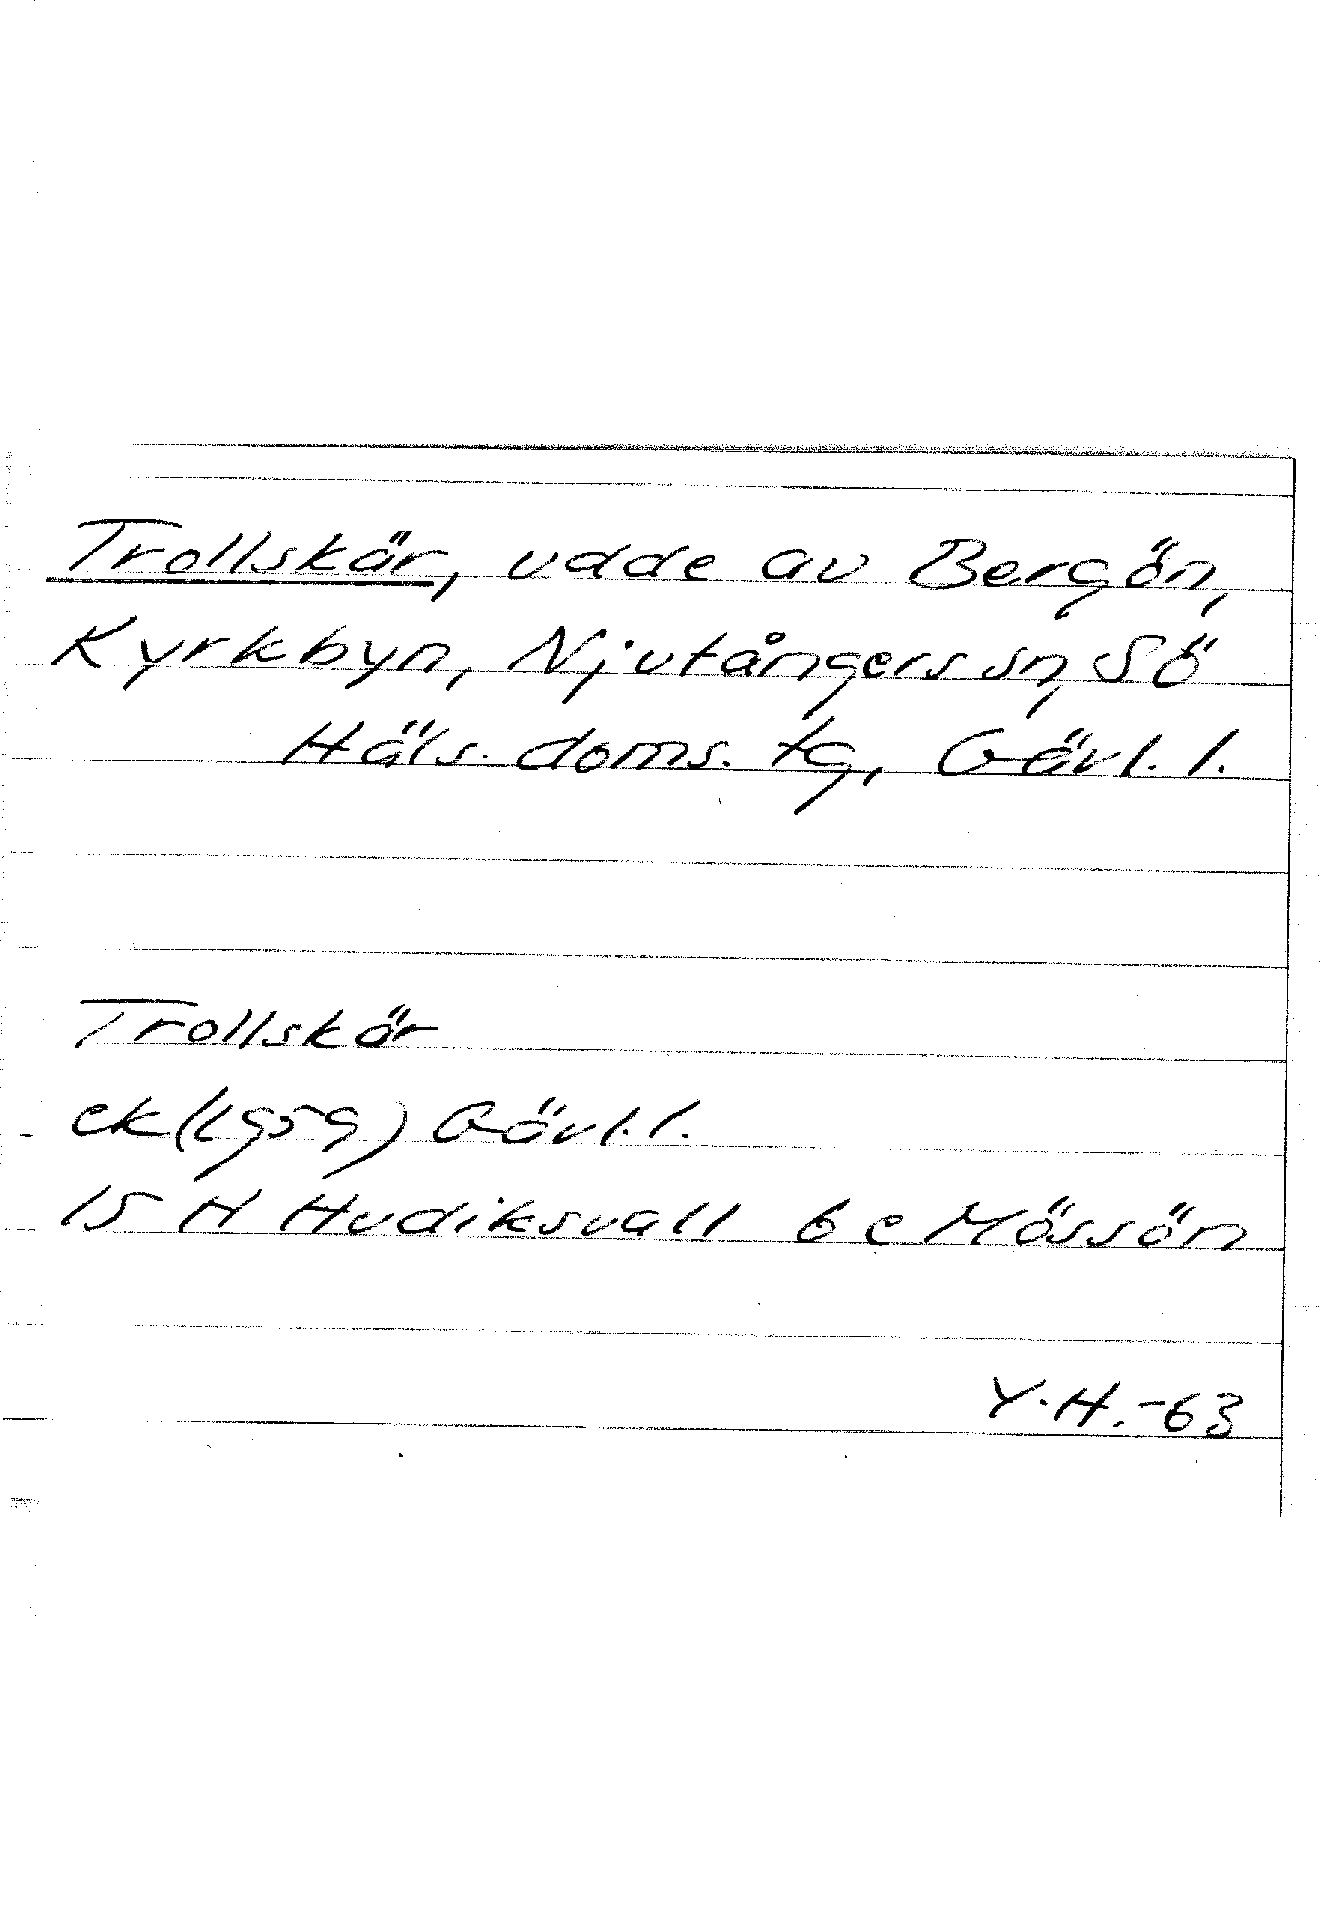 Trollskär, udde av Bergön,
Kyrkbyn, Njutångers sn, Sö
Häls. doms. tg, Gävl. l.
Trollskär
ek (1959) Gävl. l.
15 H Hudiksvall 6 e Mössön
Y.H.-63